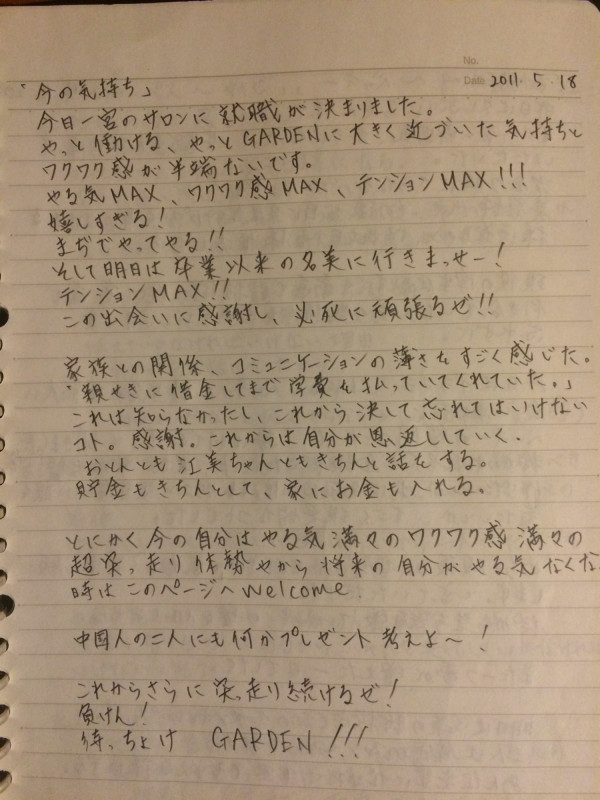 No.
Date 2011. 5. 18
「今の気持ち」
今日一宮のサロンに就職が決まりました。
やっと働ける、やっとGARDENに大きく近づいた気持ちと
ワクワク感が半端ないです。
やる気MAX、ワクワク感MAX、テンションMAX!!!
嬉しすぎる!
まぢでやってやる!!
そして明日は卒業以来の名美に行きまっせー!
テンションMAX!!
この出会いに感謝し、必死に頑張るぜ!!
家族との関係、コミュニケーションの薄さをすごく感じた。
「親せきに借金してまで学費を払っていてくれていた。」
これは知らなかったし、これから決して忘れてはいけない
コト。感謝。これからは自分が恩返ししていく.
おとんとも江美ちゃんともきちんと話をする。
貯金もきちんとして、家にお金も入れる。
とにかく今の自分はやる気満々のワクワク感満々の
超突っ走り体勢やから将来の自分がやる気なくな
時はこのページへwelcome.
中国人の二人にも何かプレゼント考えよ〜!
これからさらに突っ走り続けるぜ!
負けん!
待っちょけ GARDEN!!!